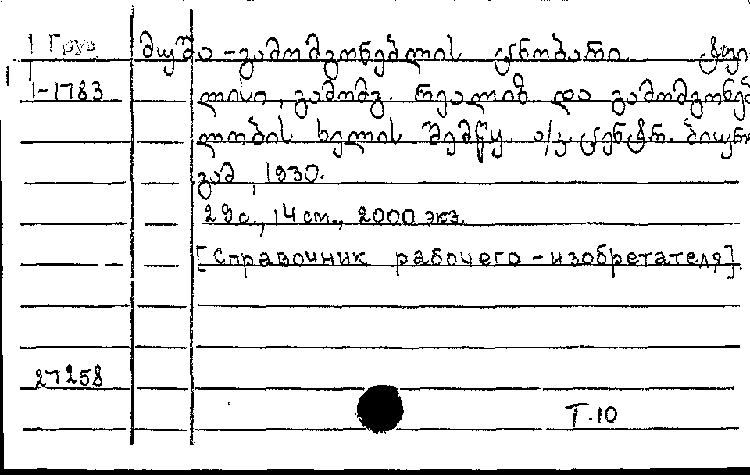 1 Груз მუშა-გამომგონებლის ცნობარი ტფი
1-1783 ლისი, გამომგ. რეალიზ. და გამომგონებ
ლობის ხელის შემწყ. ა/კ. ცენტრ. ბიურო
გამ, 1930.
29 с., 14 ст., 2000 экз.
[Справочник рабочего-изобретателя]
27258
Т.10